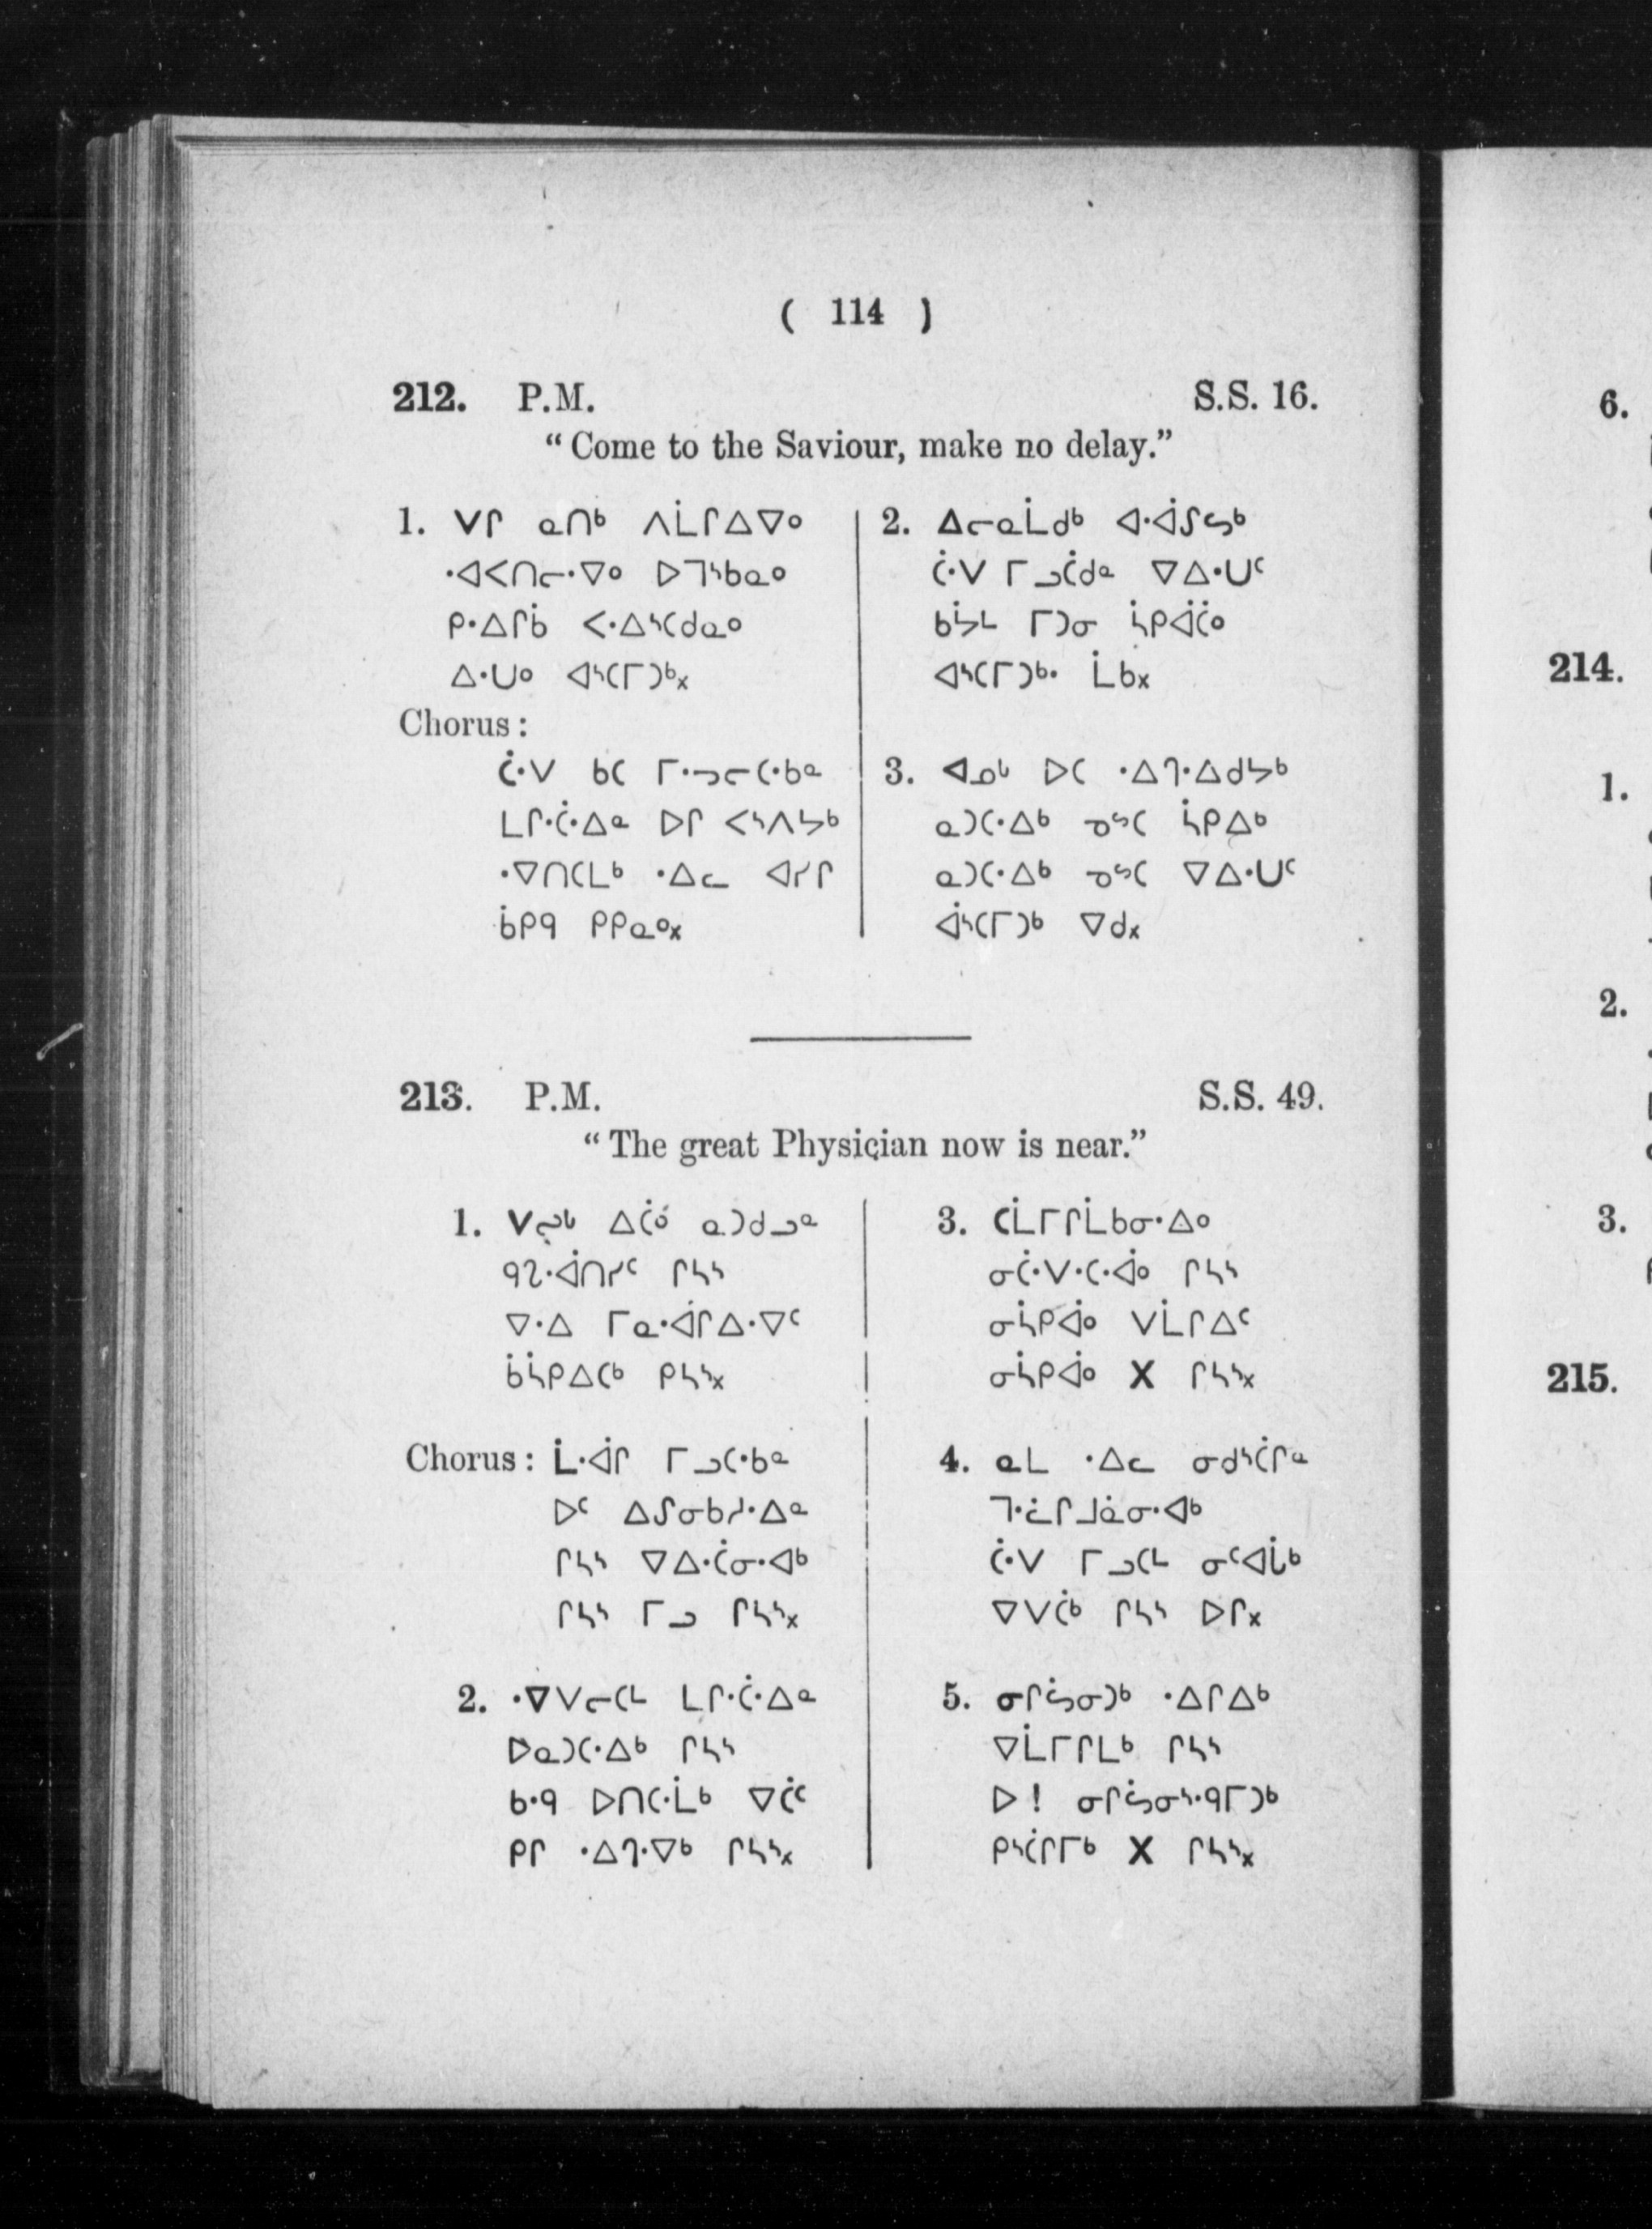 ( 114 )
212. P.M. S.S. 16.
“ Come to the Saviour, make no delay.”
1. ᐯᒋ ᓇᑎᒃ ᐱᒫᒋᐃᐁᐤ
ᐗᐸᑎᓕᐌᐤ ᐅᒣᔅᑲᓇᐤ
ᑭᐎᒋᑳ ᐸᐎᔅᑕᑯᓇᐤ
ᐃᐧᑌᐤ ᐊᔅᑕᒥᑐᒃ᙮
Chorus :
ᑖᐧᐯ ᑲᑕ ᒥᐧᓗᓕᑕᐧᑲᓐ
ᒪᒋᑖᐧᐃᐧᓐ ᐅᒋ ᐸᔅᐱᔭᒃ
ᐌᑎᑕᒪᒃ ᐎᓚ ᐊᓯᒋ
ᑳᑭᑫ ᑭᑭᓇᐤ᙮
2. ᐃᓕᓇᒫᑯᒃ ᐊᐧᐚᔑᔕᒃ
ᑖᐧᐯ ᒥᓗᑖᑯᓐ ᐁᐃᐧᑌᑦ
ᑲᔮᒻ ᒥᑐᓂ ᓵᑭᐋᑖᐤ
ᐊᔅᑕᒥᑐᒃᐧ ᒫᑲ᙮
3. ᐊᓄᒡ ᐅᑕ ᐎᒉᐃᐧᑯᔭᒃ
ᓇᑐᑕᐧᐃᒃ ᓀᔥᑕ ᓵᑭᐃᒃ
ᓇᑐᑕᐧᐃᒃ ᓀᔥᑕ ᐁᐃᐧᑌᑦ
ᐋᔅᑕᒥᑐᒃ ᐁᑯ᙮
213. P.M. S.S. 49.
“ The great Physician now is near.”
1. ᐯᔓᒡ ᐃᑖᐤ ᓇᑐᑯᓗᓐ
ᑫᔐᐧᐋᑎᓯᑦ ᒋᓴᔅ
ᐁᐧᐃ ᒥᓇᐧᐋᒋᐃᐧᐁᑦ
ᑳᓵᑭᐃᑕᒃ ᑭᓴᔅ᙮
Chorus : ᒫᐧᐋᒋ ᒥᓗᑕᐧᑲᓐ
ᐅᑦ ᐃᔑᓂᑲᓱᐧᐃᓐ
ᒋᓴᔅ ᐁᐃᐧᑖᓂᐧᐊᒃ
ᒋᓴᔅ ᒥᓗ ᒋᓴᔅ᙮
2. ᐌᐯᓕᑕᒻ ᒪᒋᑖᐧᐃᐧᓐ
ᐅᓇᑐᑕᐧᐃᒃ ᒋᓴᔅ
ᑲᐧᑫ ᐅᑎᑕᐧᒫᒃ ᐁᑖᑦ
ᑭᒋ ᐎᒉᐧᐁᒃ ᒋᓴᔅ᙮
3. ᑕᒫᒥᒋᒫᑲᓂᐧᐃᐤ
ᓂᑖᐧᐯᐧᑕᐧᐋᐤ ᒋᓴᔅ
ᓂᓵᑭᐋᐤ ᐯᒫᒋᐃᑦ
ᓂᓵᑭᐋᐤ X ᒋᓴᔅ᙮
4. ᓇᒪ ᐎᓚ ᓂᑯᔅᑖᒋᓐ
ᒣᐧᓛᒋᒧᓈᓂᐧᐊᒃ
ᑖᐧᐯ ᒥᓗᑕᒻ ᓂᑦᐊᒑᒃ
ᐁᐯᑖᒃ ᒋᓴᔅ ᐅᒋ᙮
5. ᓂᒋᔖᓂᑐᒃ ᐎᒋᐃᒃ
ᐁᒫᒥᒋᒪᒃ ᒋᓴᔅ
ᐅ ! ᓂᒋᔖᓂᔅᐧᑫᒥᑐᒃ
ᑭᔅᑖᒋᒥᒃ X ᒋᓴᔅ᙮
6.
214.
1.
2.
3.
215.